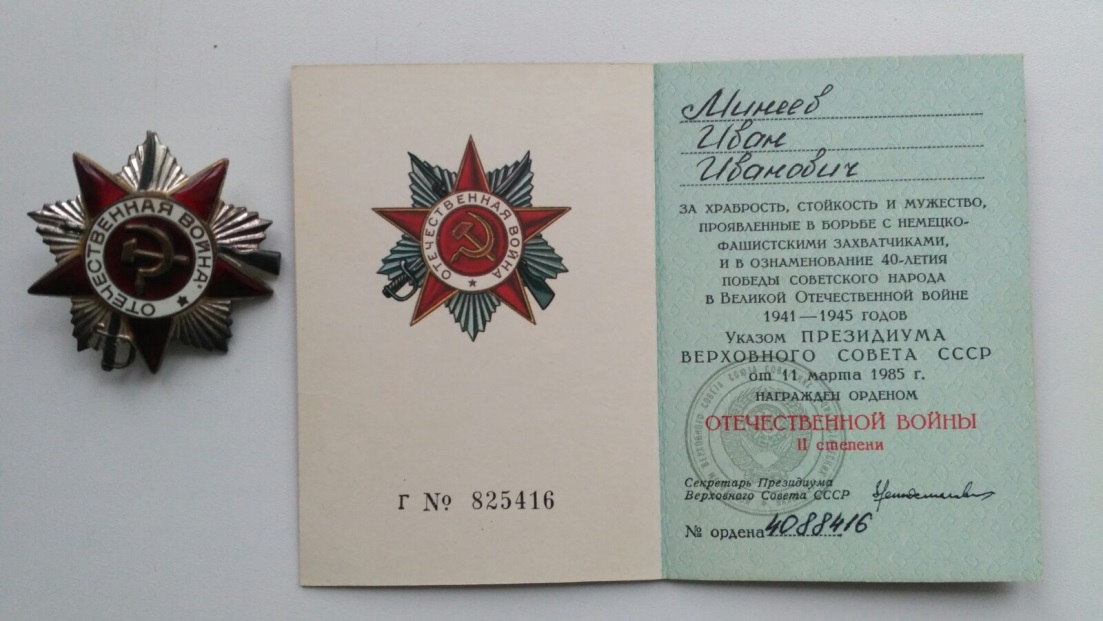 ОТЕЧЕСТВЕННАЯ ВОЙНА
ОТЕЧЕСТВЕННАЯ ВОЙНА
Г № 825416
Минеев
Иван
Иванович
ЗА ХРАБРОСТЬ, СТОЙКОСТЬ И МУЖЕСТВО,
ПРОЯВЛЕННЫЕ В БОРЬБЕ С НЕМЕЦКО-
ФАШИСТСКИМИ ЗАХВАТЧИКАМИ,
И В ОЗНАМЕНОВАНИЕ 40-ЛЕТИЯ
ПОБЕДЫ СОВЕТСКОГО НАРОДА
В ВЕЛИКОЙ ОТЕЧЕСТВЕННОЙ ВОЙНЕ
1941—1945 ГОДОВ
УКАЗОМ ПРЕЗИДИУМА
ВЕРХОВНОГО СОВЕТА СССР
от 11 марта 1985 г.
НАГРАЖДЕН ОРДЕНОМ
ОТЕЧЕСТВЕННОЙ ВОЙНЫ
II степени
Секретарь Президиума
Верховного Совета СССР
№ ордена 4088416